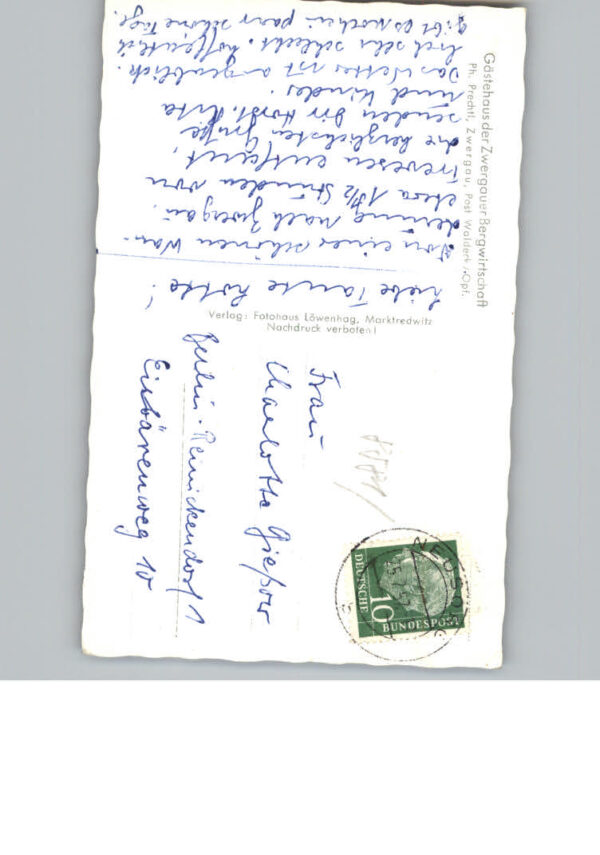 Gästehaus der Zwergauer Bergwirtschaft
Ph. Prechtl, Zwergau, Post Waldeck /Opf.
Liebe Tante Lotte!
Von einer schönen Wan-
derung nach Zwergau,
etwa 1 1/2 Stunden von
Trevesen entfernt,
die herzlichsten Grüße
senden Dir Horst,
und Kinder.
Das Wetter ist augenblick-
lich sehr schlecht. Hoffentlich
gibt es noch ein paar schöne Tage.
Verlag: Fotohaus Löwenhag, Marktredwitz
Nachdruck verboten!
Frau
Charlotte Gießow
Berlin-Reinickendorf 1
Eisbärenweg 10
NEUSORG
DEUTSCHE
10
BUNDESPOST